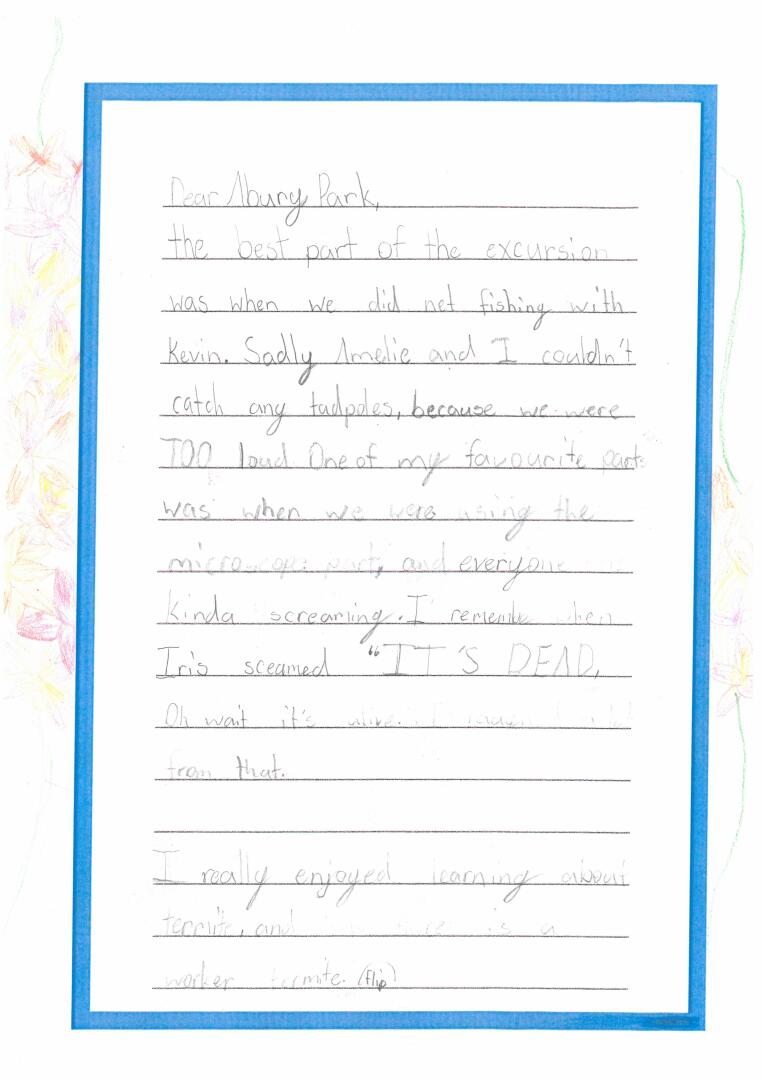 Dear Abury Park,
the best part of the excursion
was when we did net fishing with
Kevin. Sadly Amelie and I couldn't
catch any tadpoles, because we were
TOO loud One of my favourite parts
was when we were using the
microscope part, and everyone
kinda screaming. I remember when
Iris sceamed "IT'S DEAD,
Oh wait it's alive. I
from that.
I really enjoyed learning about
termite, and is a
worker termite. (flip)